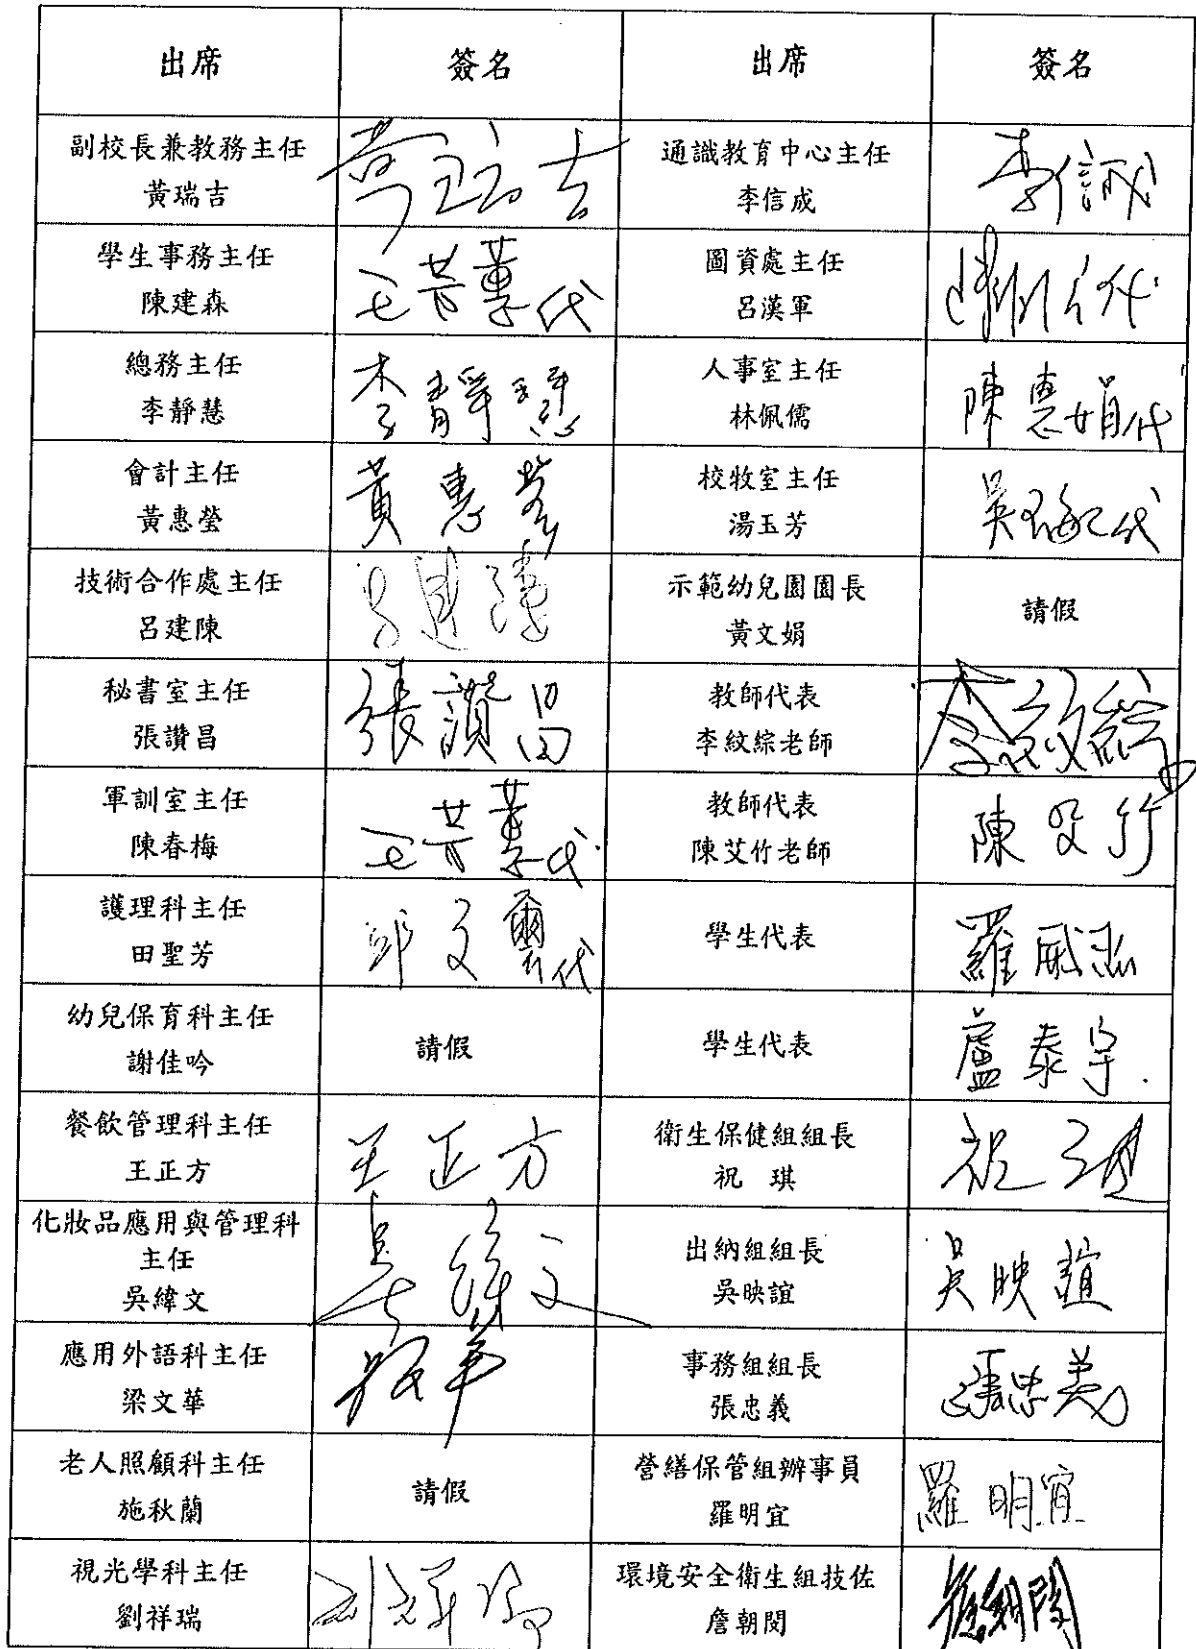 出席 簽名 出席 簽名
副校長兼教務主任
黃瑞吉
黃瑞吉
通識教育中心主任
李信成
李信誠
學生事務主任
陳建森
代
圖資處主任
呂漢軍
代
總務主任
李靜慧
李靜慧
人事室主任
林佩儒
陳惠娟代
會計主任
黃惠瑩
黃惠瑩
校牧室主任
湯玉芳
吳 代
技術合作處主任
呂建陳
示範幼兒園園長
黃文娟
請假
秘書室主任
張讚昌
張讚昌
教師代表
李紋綜老師
李紋綜
軍訓室主任
陳春梅
代
教師代表
陳艾竹老師
陳艾竹
護理科主任
田聖芳
代
學生代表
羅
幼兒保育科主任
謝佳吟
請假
學生代表
盧泰宇
餐飲管理科主任
王正方
王正方
衛生保健組組長
祝 琪
祝琪
化妝品應用與管理科
主任
吳緯文
吳緯文
出納組組長
吳映誼
吳映誼
應用外語科主任
梁文華
事務組組長
張忠義
張忠義
老人照顧科主任
施秋蘭
請假
營繕保管組辦事員
羅明宜
羅明宜
視光學科主任
劉祥瑞
環境安全衛生組技佐
詹朝閔
詹朝閔